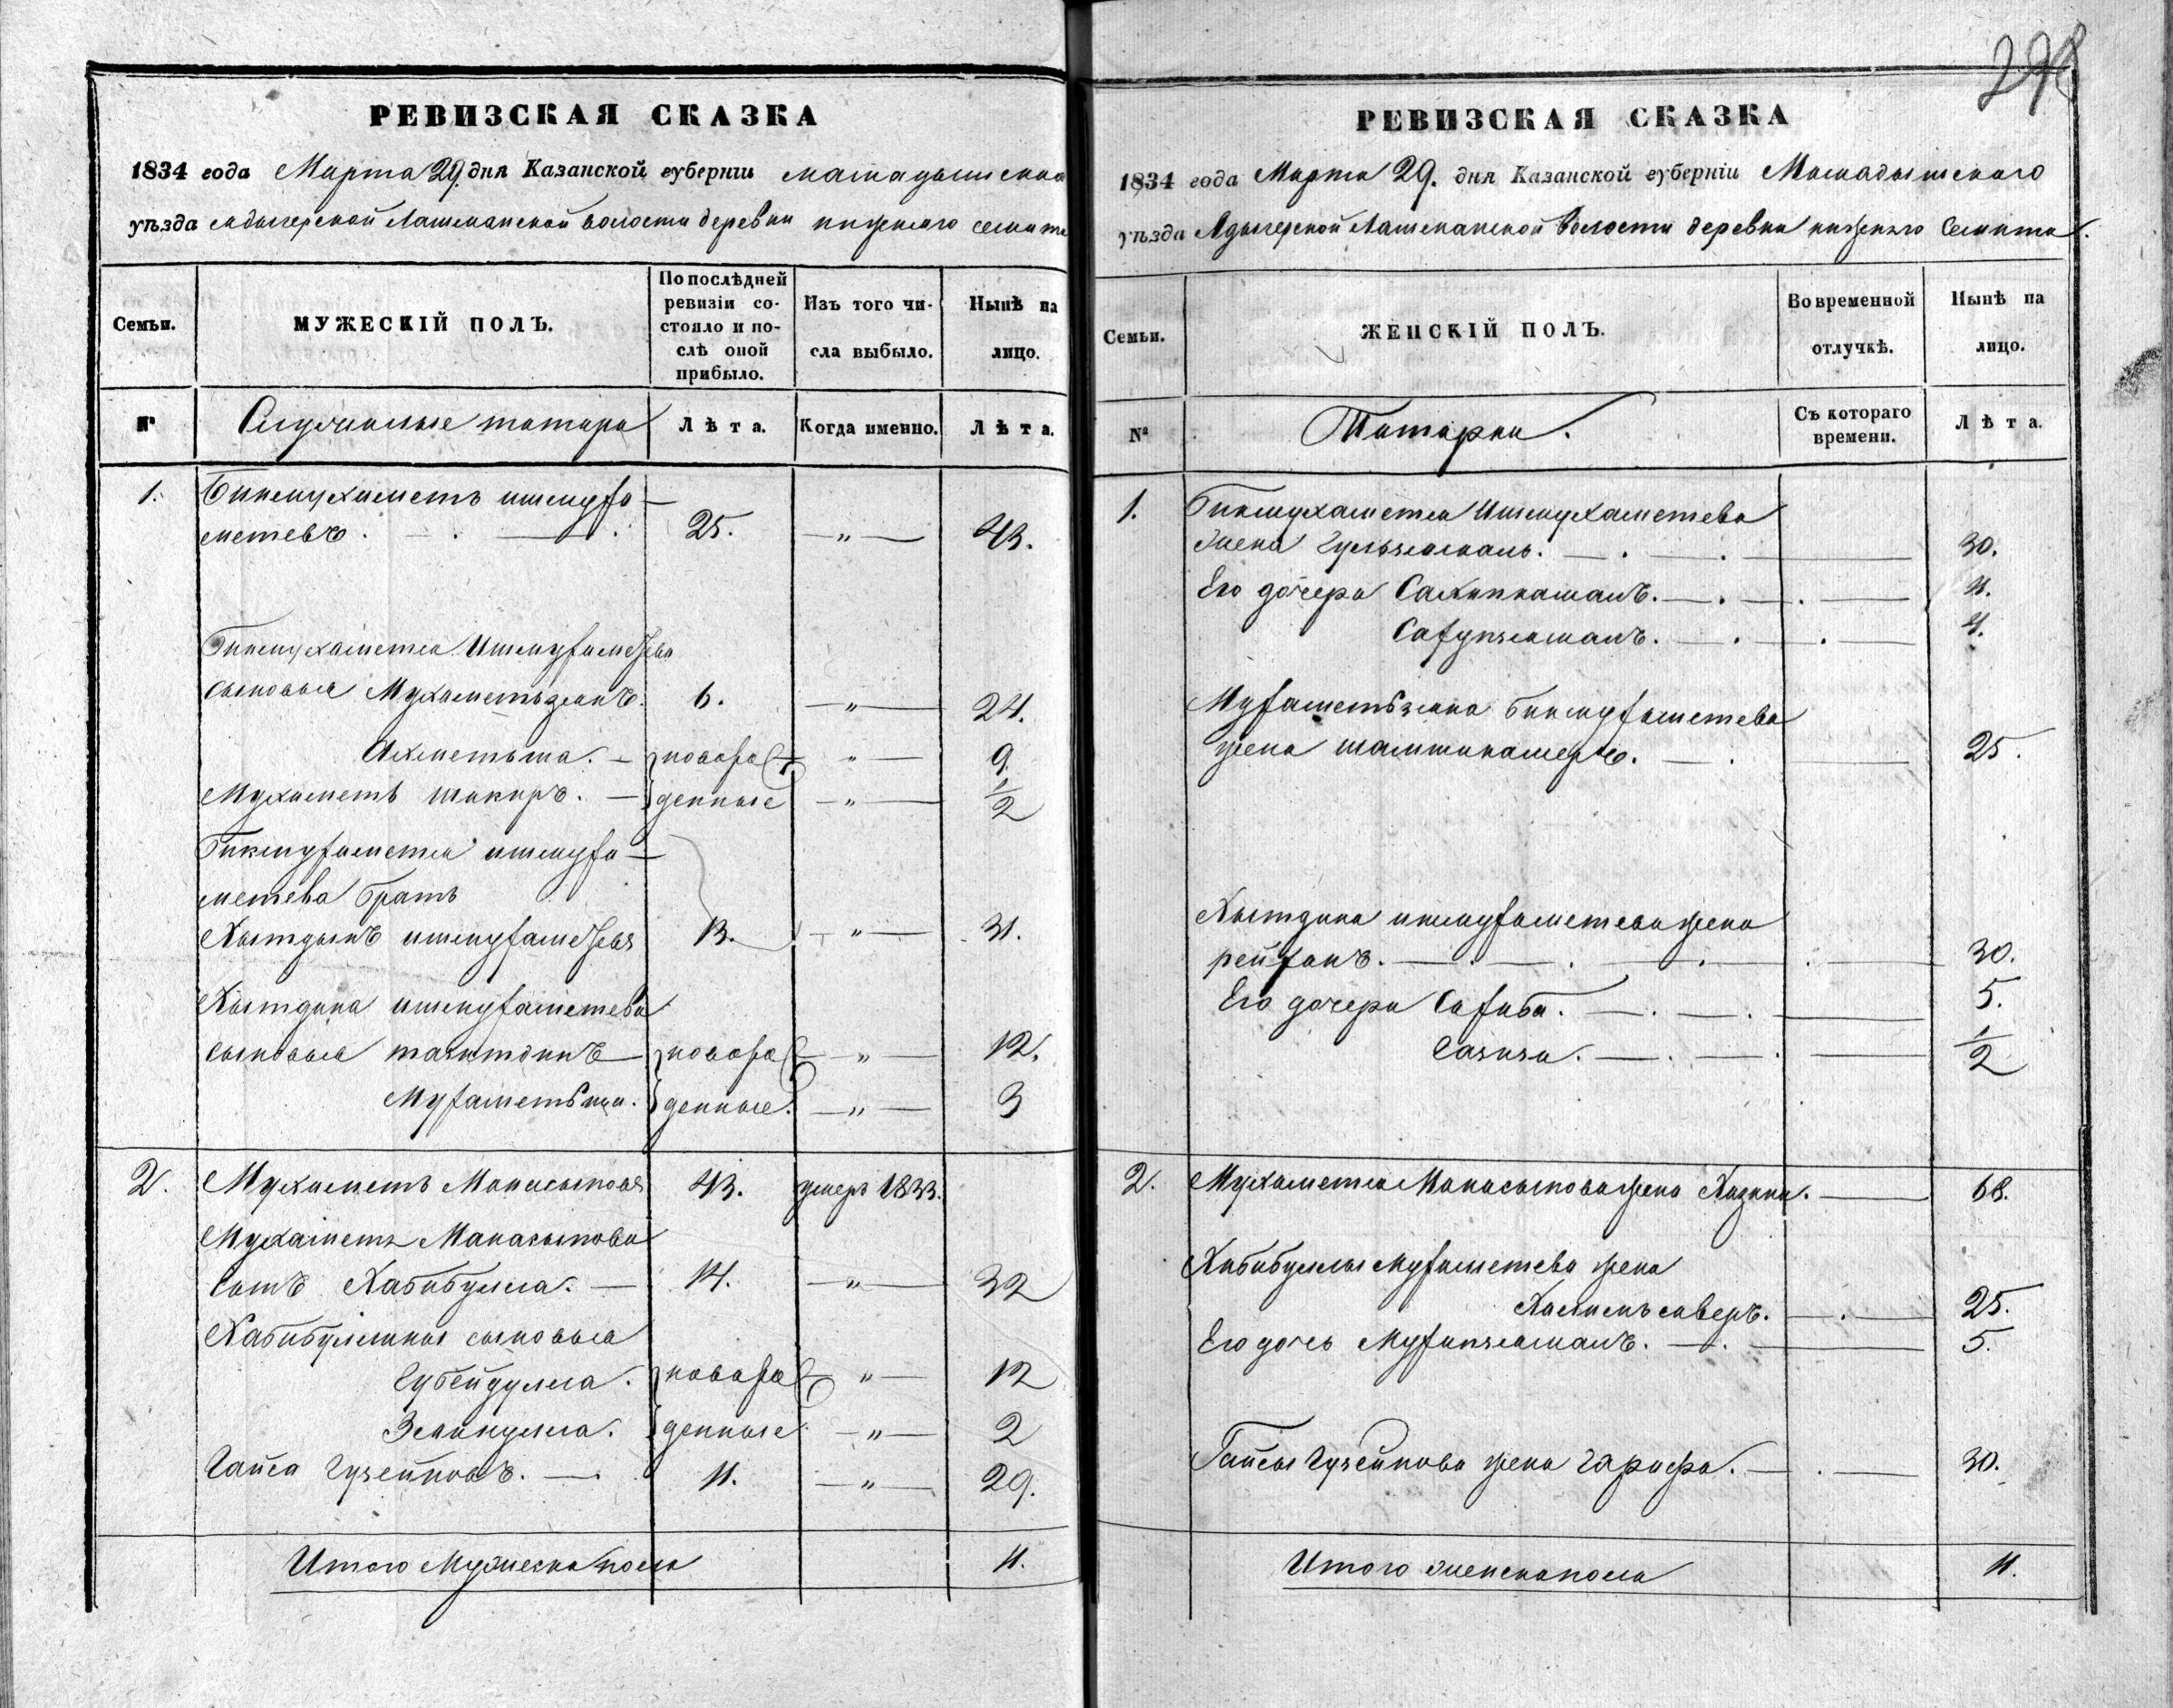 298
РЕВИЗСКАЯ СКАЗКА
1834 года Марта 29. дня Казанской губерніи мамадышскаго
уѣзда адыгерской Лашманской волости деревни нижняго
Семьи.
МУЖЕСКІЙ ПОЛЪ.
По послѣдней ревизіи состояло и послѣ оной прибыло.
Изъ того числа выбыло.
Нынѣ на лицо.
№
Служилые татара
Лѣта.
Когда именно.
Лѣта.
1. Бикмухаметъ ишмуха-
метевъ . — . — . 25. — „ — 43.
Бикмухамета Ишмухаметева
сыновья Мухаметьзянъ. 6. — „ — 24.
Ахметьша. — новоро „ — 9
Мухаметъ шакиръ. — жденные — „ — 1/2
Бикмухамета ишмуха-
метева братъ
Хытдынъ ишмухаметевъ 13. — „ — 31.
Хытдина ишмухаметева
сыновья тазитдинъ новоро — „ — 12.
Мухаметьша. жденные. — „ — 3
2. Мухаметъ Манасыповъ 43. умеръ 1833.
Мухаметъ Манасыпова
сынъ Хабибулла. — 14. — „ — 32
Хабибуллины сыновья
Губейдулла. новоро — „ — 12
Зеанкулла. жденные — „ — 2
Гайса Гузеиновъ. — . 11. — „ — 29.
Итого Мужеска пола 11.
РЕВИЗСКАЯ СКАЗКА
1834 года Марта 29. дня Казанской губерніи Мамадышскаго
уѣзда Адыгерской Лашманской волости деревни нижняго
Семьи.
ЖЕНСКІЙ ПОЛЪ.
Во временной отлучкѣ.
Нынѣ на лицо.
№
Татарки.
Съ котораго времени.
Лѣта.
1. Бикмухамета Ишмухаметева
жена Гульзямаль. — . — . — 30.
Его дочери Сахипкамалъ. — . — . — 11.
Сахупзямалъ. — . — . — 4.
Мухаметьзяна бикмухаметева
жена шамшикамеръ. — . — 25.
Хытдина ишмухаметева жена
рейханъ. — . — . — . — . — 30.
Его дочери Сахиба. — . — . — 5.
Сазиза. — . — . — 1/2
2. Мухамета Манасыпова жена Хазина. — 68.
Хабибуллы Мухаметева жена
— . — 25.
Его дочь Мухипзямалъ. — . — 5.
Гайсы Гузеинова жена Гарифа. — . — 30.
Итого женска пола 11.